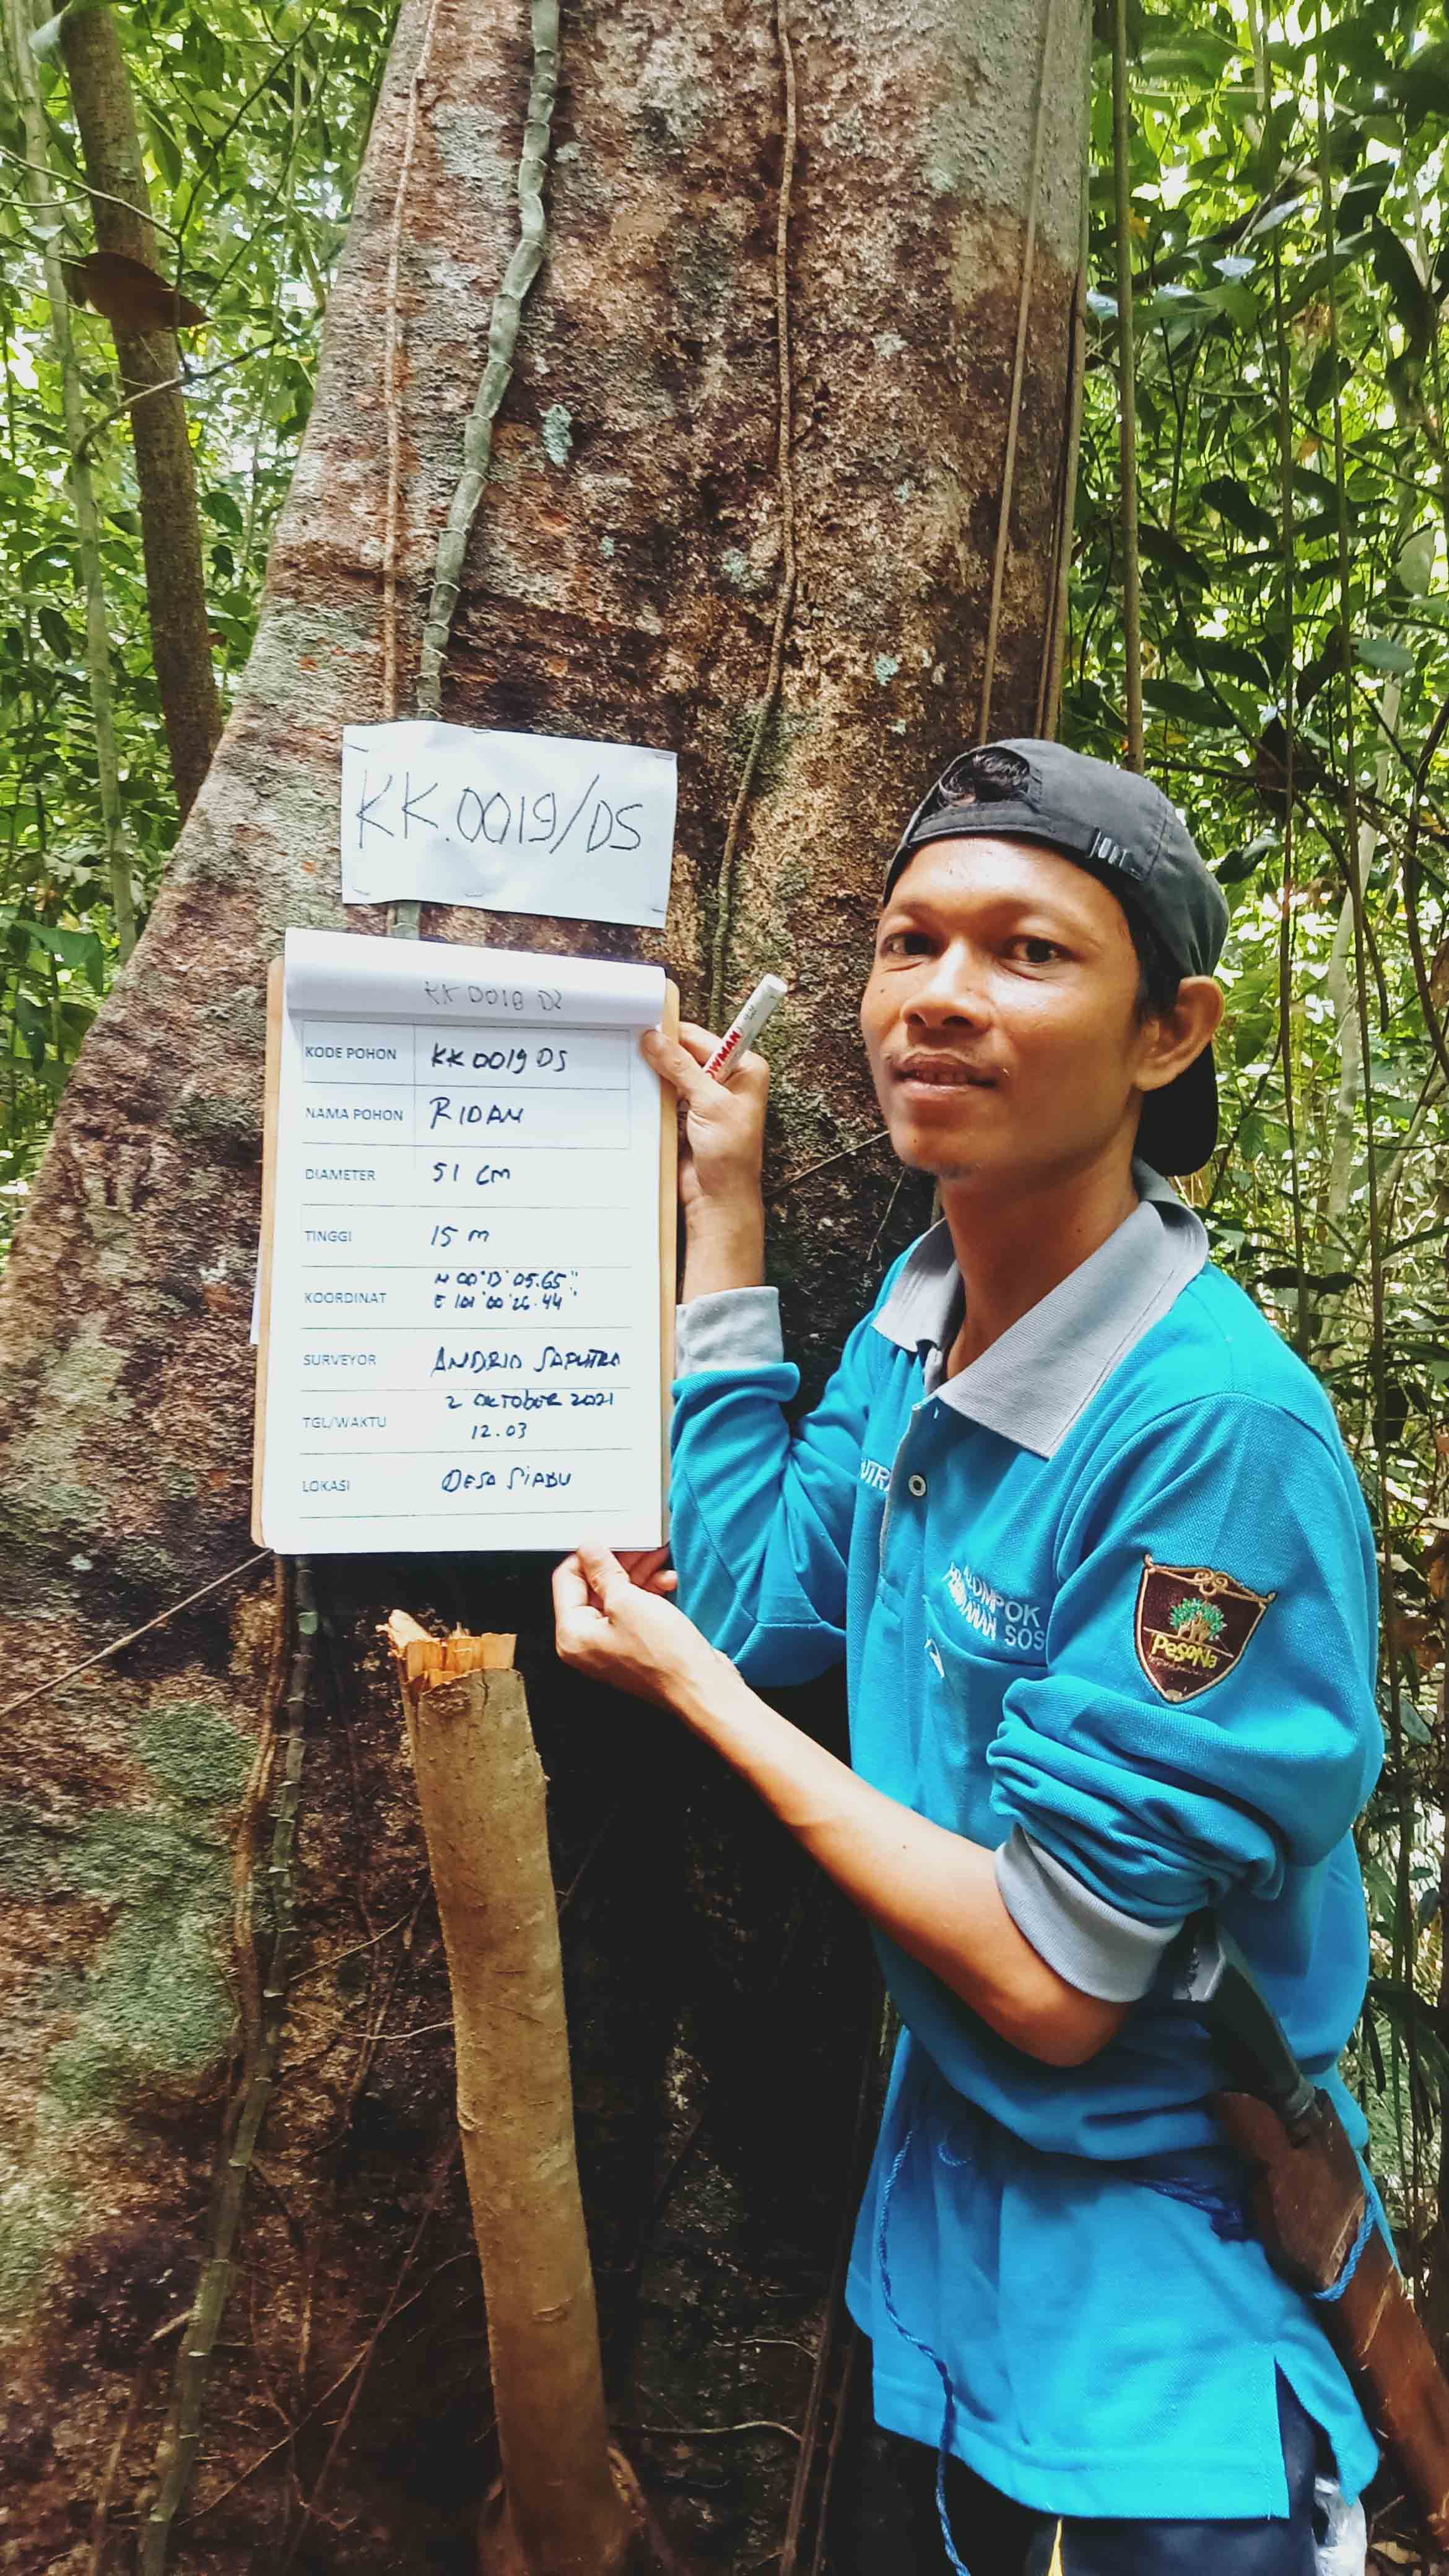 KK.0019/DS
KK 0018 DS
KODE POHON KK 0019 DS
NAMA POHON RIDAN
DIAMETER 51 CM
TINGGI 15 M
KOORDINAT N 00°13'05.65"
E 101°00'26.44"
SURVEYOR ANDRIO SAPUTRA
TGL/WAKTU 2 OKTOBER 2021
12.03
LOKASI DESA SIABU
OWMAN
UTRA
KELOMPOK
SOS
PeSoNa